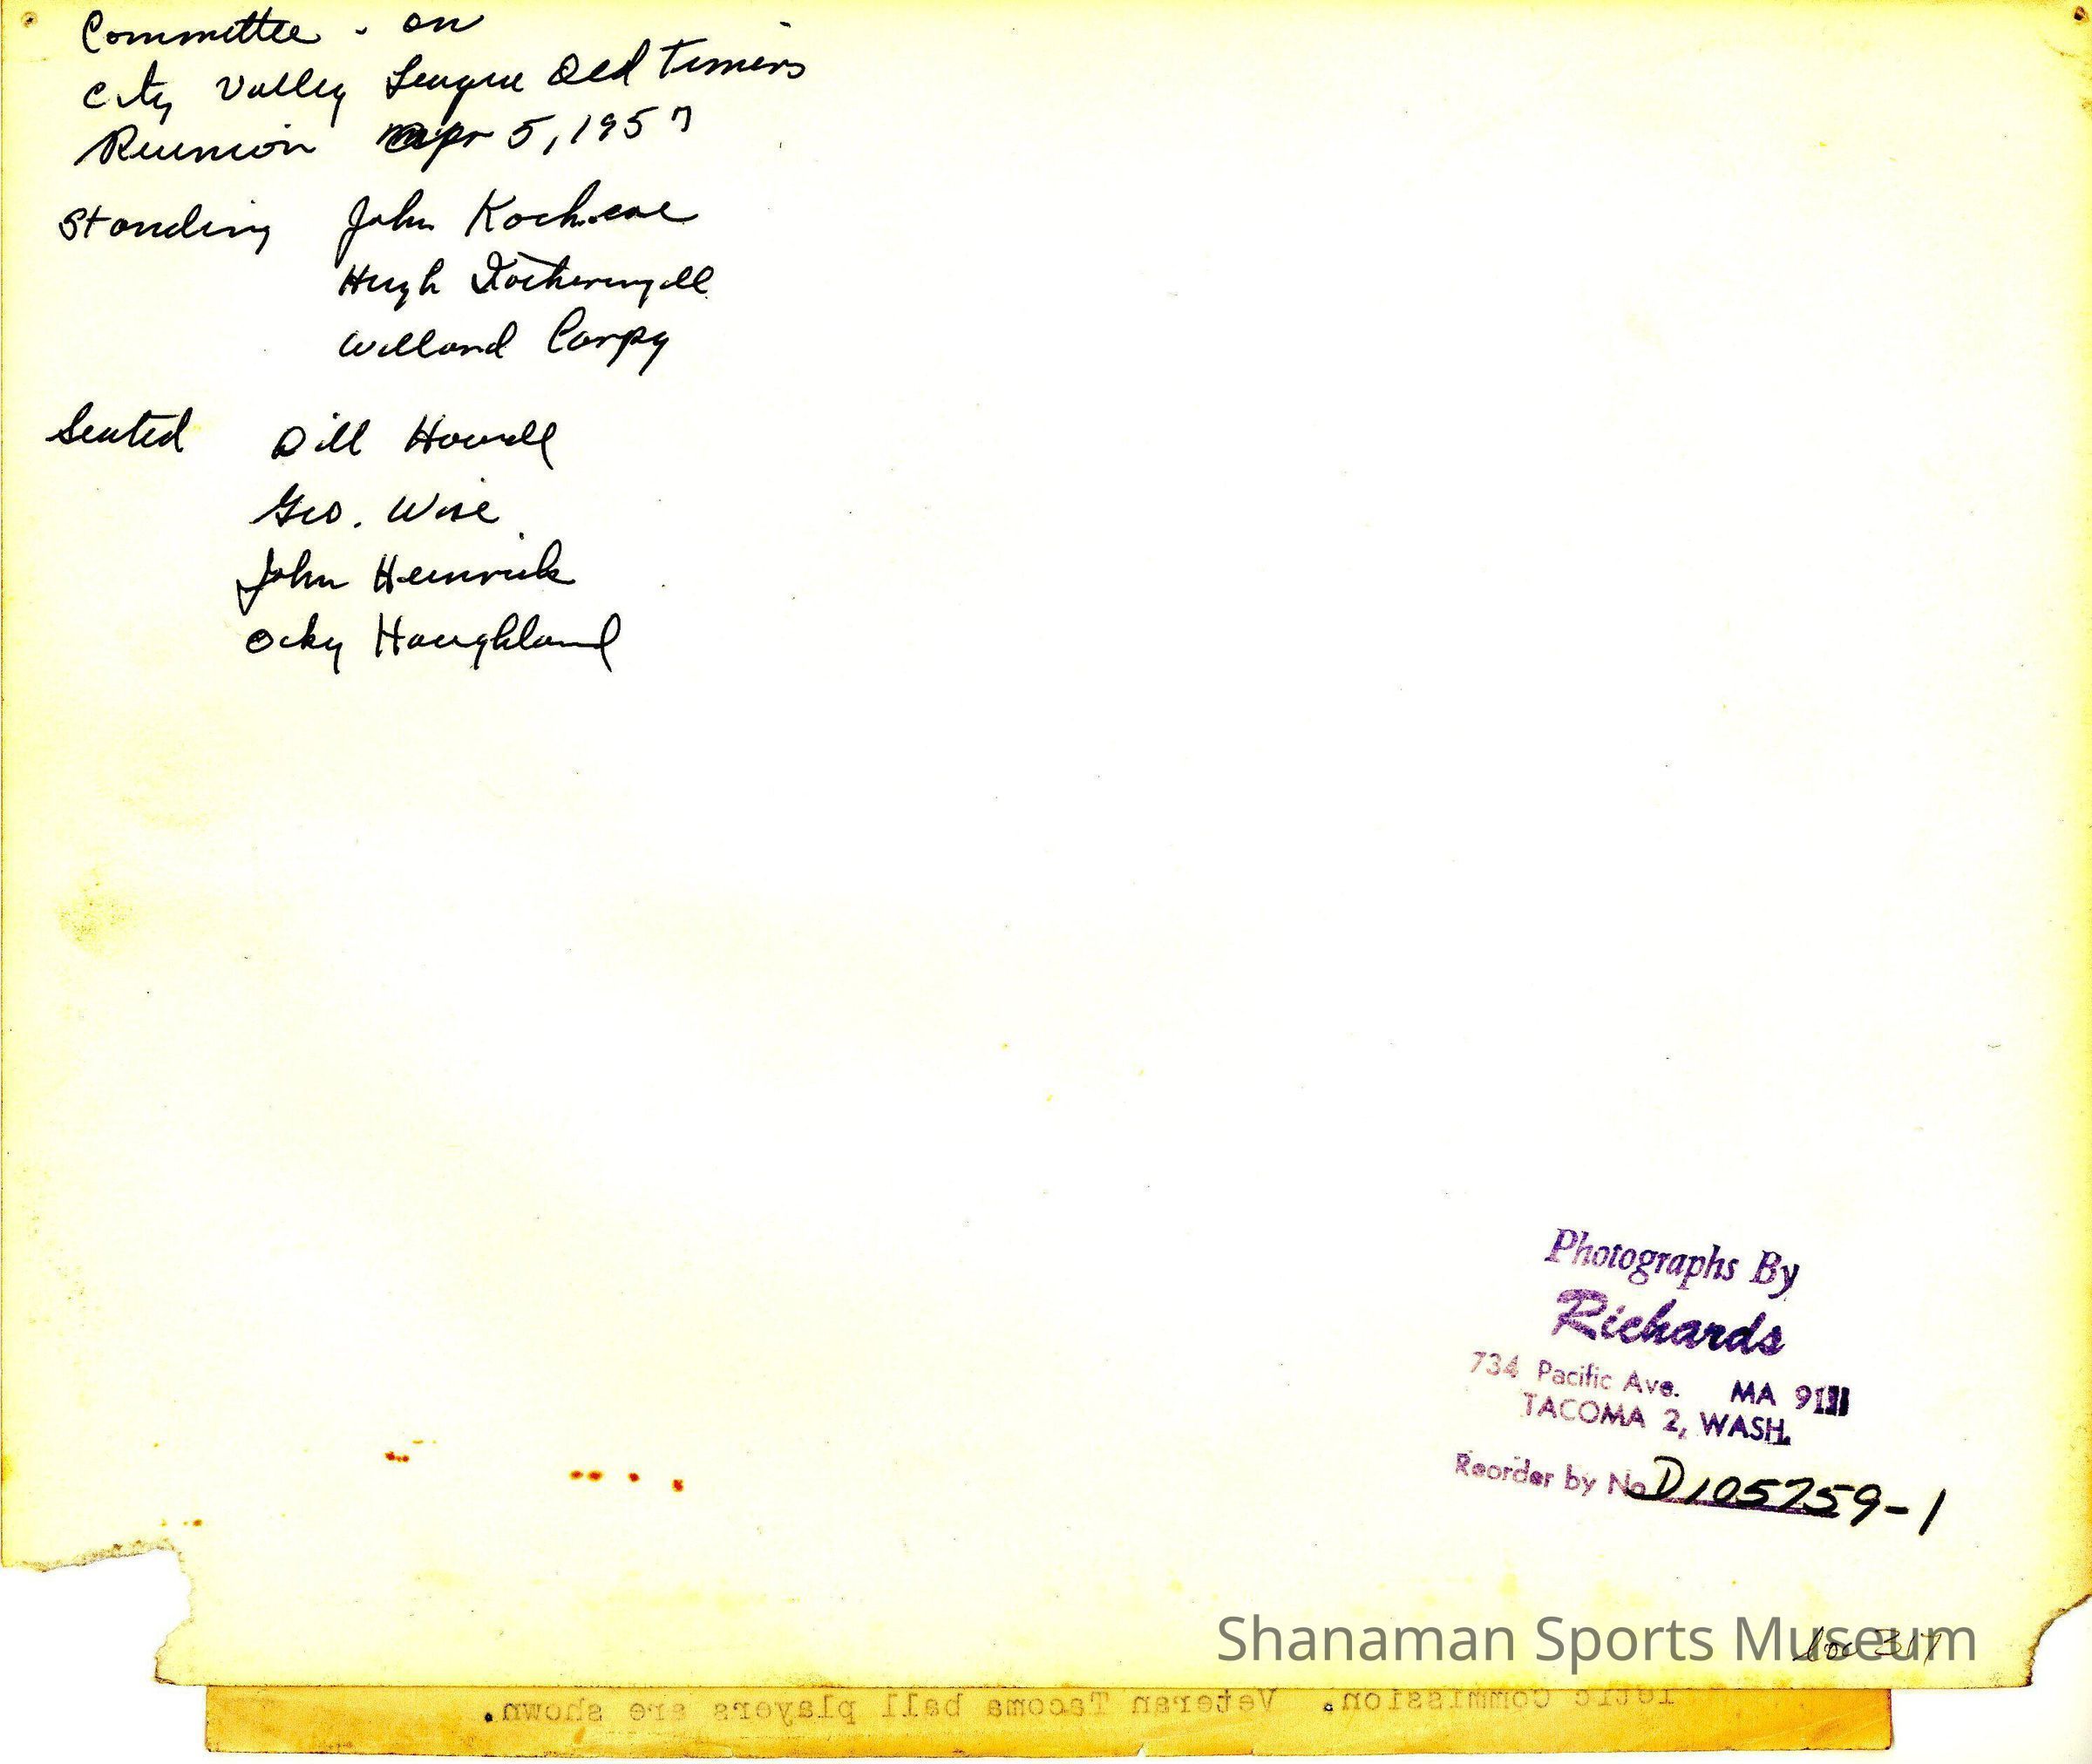 Committee - on
City Valley League Old Timers
Reunion Apr 5, 1957
Standing John Kochcae
Hugh Fotheringill
Willard Carpy
Seated Dill Howell
Geo. Wise
John Heinrick
Ocky Haughland
Photographs By
Richards
734 Pacific Ave. MA 911
TACOMA 2, WASH.
Reorder by No D105759-1
Shanaman Sports Museum
loc 317
letic Commission. Veteran Tacoma ball players are shown.